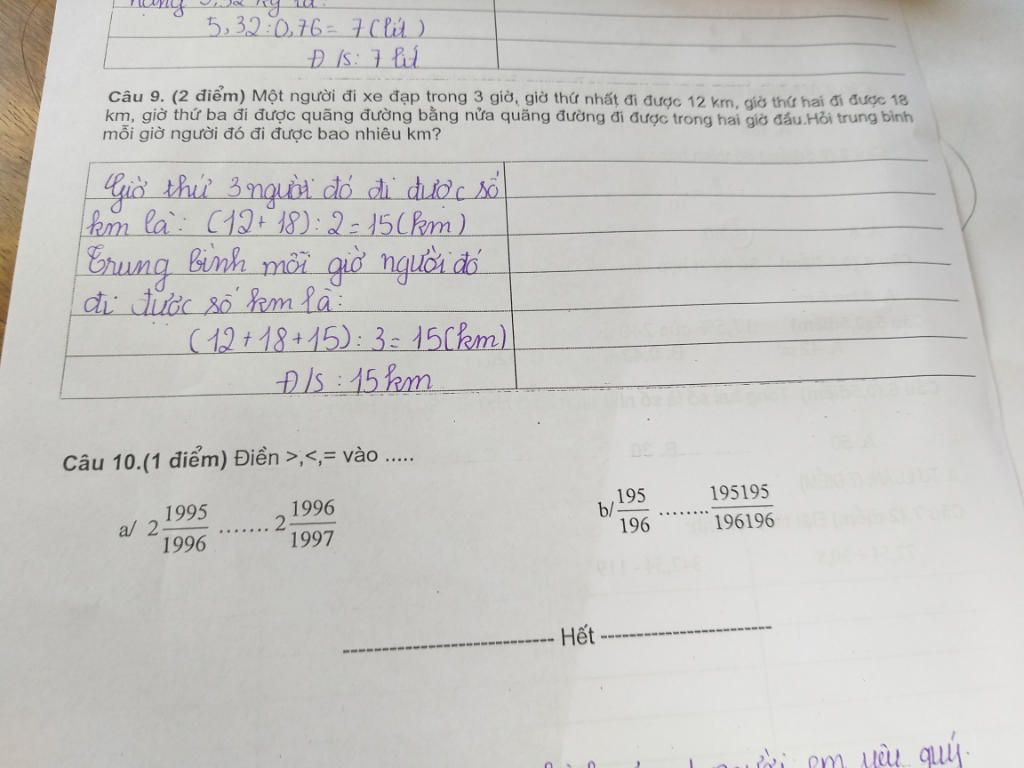 5,32:0,76= 7 (lít)
Đ/s: 7 lít
Câu 9. (2 điểm) Một người đi xe đạp trong 3 giờ, giờ thứ nhất đi được 12 km, giờ thứ hai đi được 18
km, giờ thứ ba đi được quãng đường bằng nửa quãng đường đi được trong hai giờ đầu.Hỏi trung bình
mỗi giờ người đó đi được bao nhiêu km?
Giờ thứ 3 người đó đi được số
km là: (12+18):2=15(km)
Trung bình mỗi giờ người đó
đi được số km là:
(12+18+15):3=15(km)
Đ/s: 15km
Câu 10.(1 điểm) Điền >,<,= vào .....
a/ 2 1995/1996 ....... 2 1996/1997 b/ 195/196 ........ 195195/196196
---------------------------- Hết ------------------------
người em yêu quý.